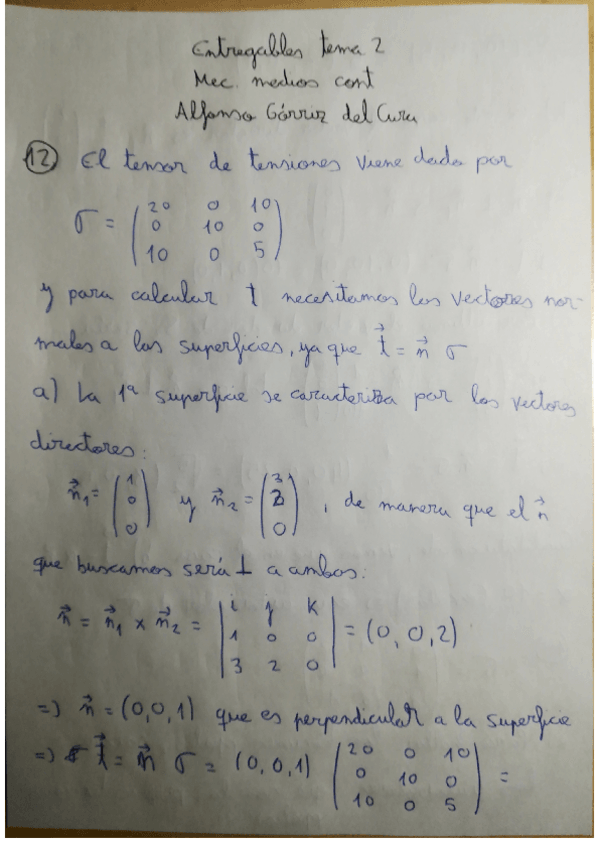 Entregables tema 2
Mec. medios cont
Alfonso Górriz del Cura
12 El tensor de tensiones viene dado por
σ = ( 20 0 10
0 10 0
10 0 5 )
y para calcular t necesitamos los vectores nor-
males a las superficies, ya que t⃗ = n⃗ σ
a) La 1ª superficie se caracteriza por los vectores
directores:
n⃗₁ = ( 1 0 0 ) y n⃗₂ = ( 3 2 0 ), de manera que el n⃗
que buscamos será ⊥ a ambos:
n⃗ = n⃗₁ × n⃗₂ = | i j k
1 0 0
3 2 0 | = (0, 0, 2)
=) n⃗ = (0,0,1) que es perpendicular a la superficie
=) t⃗ = n⃗ σ = (0, 0, 1) ( 20 0 10
0 10 0
10 0 5 ) =